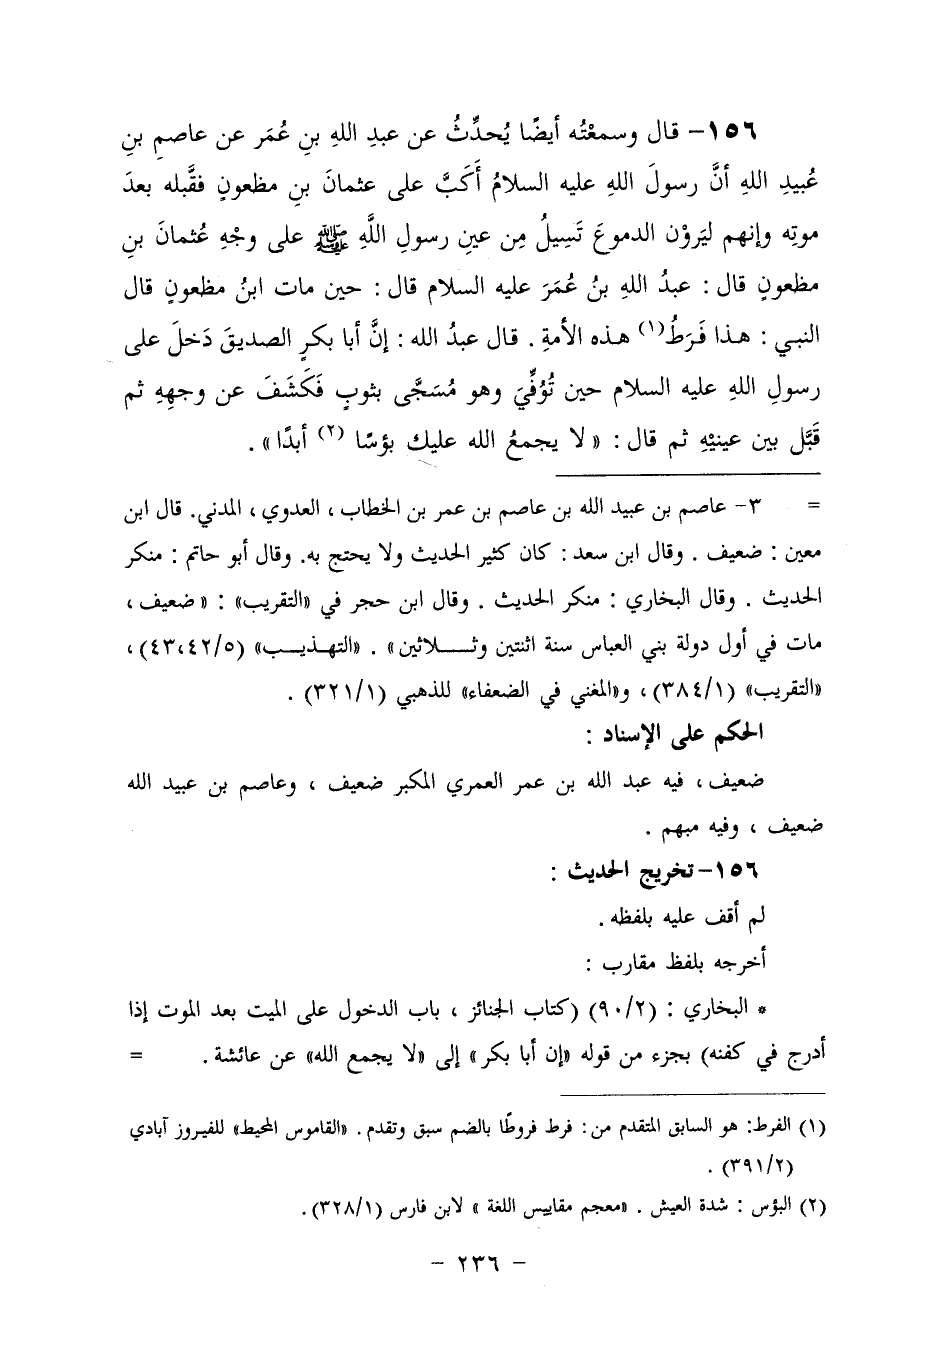 ١٥٦- قال وسمعْتُه أيضًا يُحدِّثُ عن عبدِ اللهِ بنِ عُمَر عن عاصمِ بنِ
عُبيدِ اللهِ أنَّ رسولَ اللهِ عليه السلامُ أَكَبَّ على عثمانَ بنِ مظعونٍ فقَّبله بعدَ
موتِه وإنهم ليَروْن الدموعَ تَسِيلُ مِن عينِ رسولِ اللَّهِ ﷺ على وجْهِ عُثمانَ بنِ
مظعونٍ قال : عبدُ اللهِ بنُ عُمَرَ عليه السلام قال : حين مات ابنُ مظعونٍ قال
النبي : هذا فَرَطُ(١) هذه الأمةِ . قال عبدُ الله : إنَّ أبا بكرٍ الصديقَ دَخلَ على
رسولِ اللهِ عليه السلام حين تُوُفِّيَ وهو مُسَجَّى بثوبٍ فَكَشَفَ عن وجهِهِ ثم
قَبَّل بين عينيْهِ ثم قال : « لا يجمعُ الله عليك بؤسًا (٢) أبدًا» .
= ٣- عاصم بن عبيد الله بن عاصم بن عمر بن الخطاب ، العدوي ، المدني. قال ابن
معين : ضعيف . وقال ابن سعد : كان كثير الحديث ولا يحتج به. وقال أبو حاتم : منكر
الحديث . وقال البخاري : منكر الحديث . وقال ابن حجر في «التقريب» : « ضعيف ،
مات في أول دولة بني العباس سنة اثنتين وثـــلاثين» . «التهـذيـــب» (٤٣،٤٢/٥) ،
«التقريب» (٣٨٤/١) ، و«المغني في الضعفاء» للذهبي (٣٢١/١) .
الحكم على الإسناد :
ضعيف ، فيه عبد الله بن عمر العمري المكبر ضعيف ، وعاصم بن عبيد الله
ضعيف ، وفيه مبهم .
١٥٦- تخريج الحديث :
لم أقف عليه بلفظه .
أخرجه بلفظ مقارب :
* البخاري : (٩٠/٢) (كتاب الجنائز ، باب الدخول على الميت بعد الموت إذا
أدرج في كفنه) بجزء من قوله «إن أبا بكر» إلى «لا يجمع الله» عن عائشة . =
(١) الفرط: هو السابق المتقدم من: فرط فروطًا بالضم سبق وتقدم . «القاموس المحيط» للفيروز آبادي
(٣٩١/٢) .
(٢) البؤس : شدة العيش . «معجم مقاييس اللغة » لابن فارس (٣٢٨/١).
- ٢٣٦ -